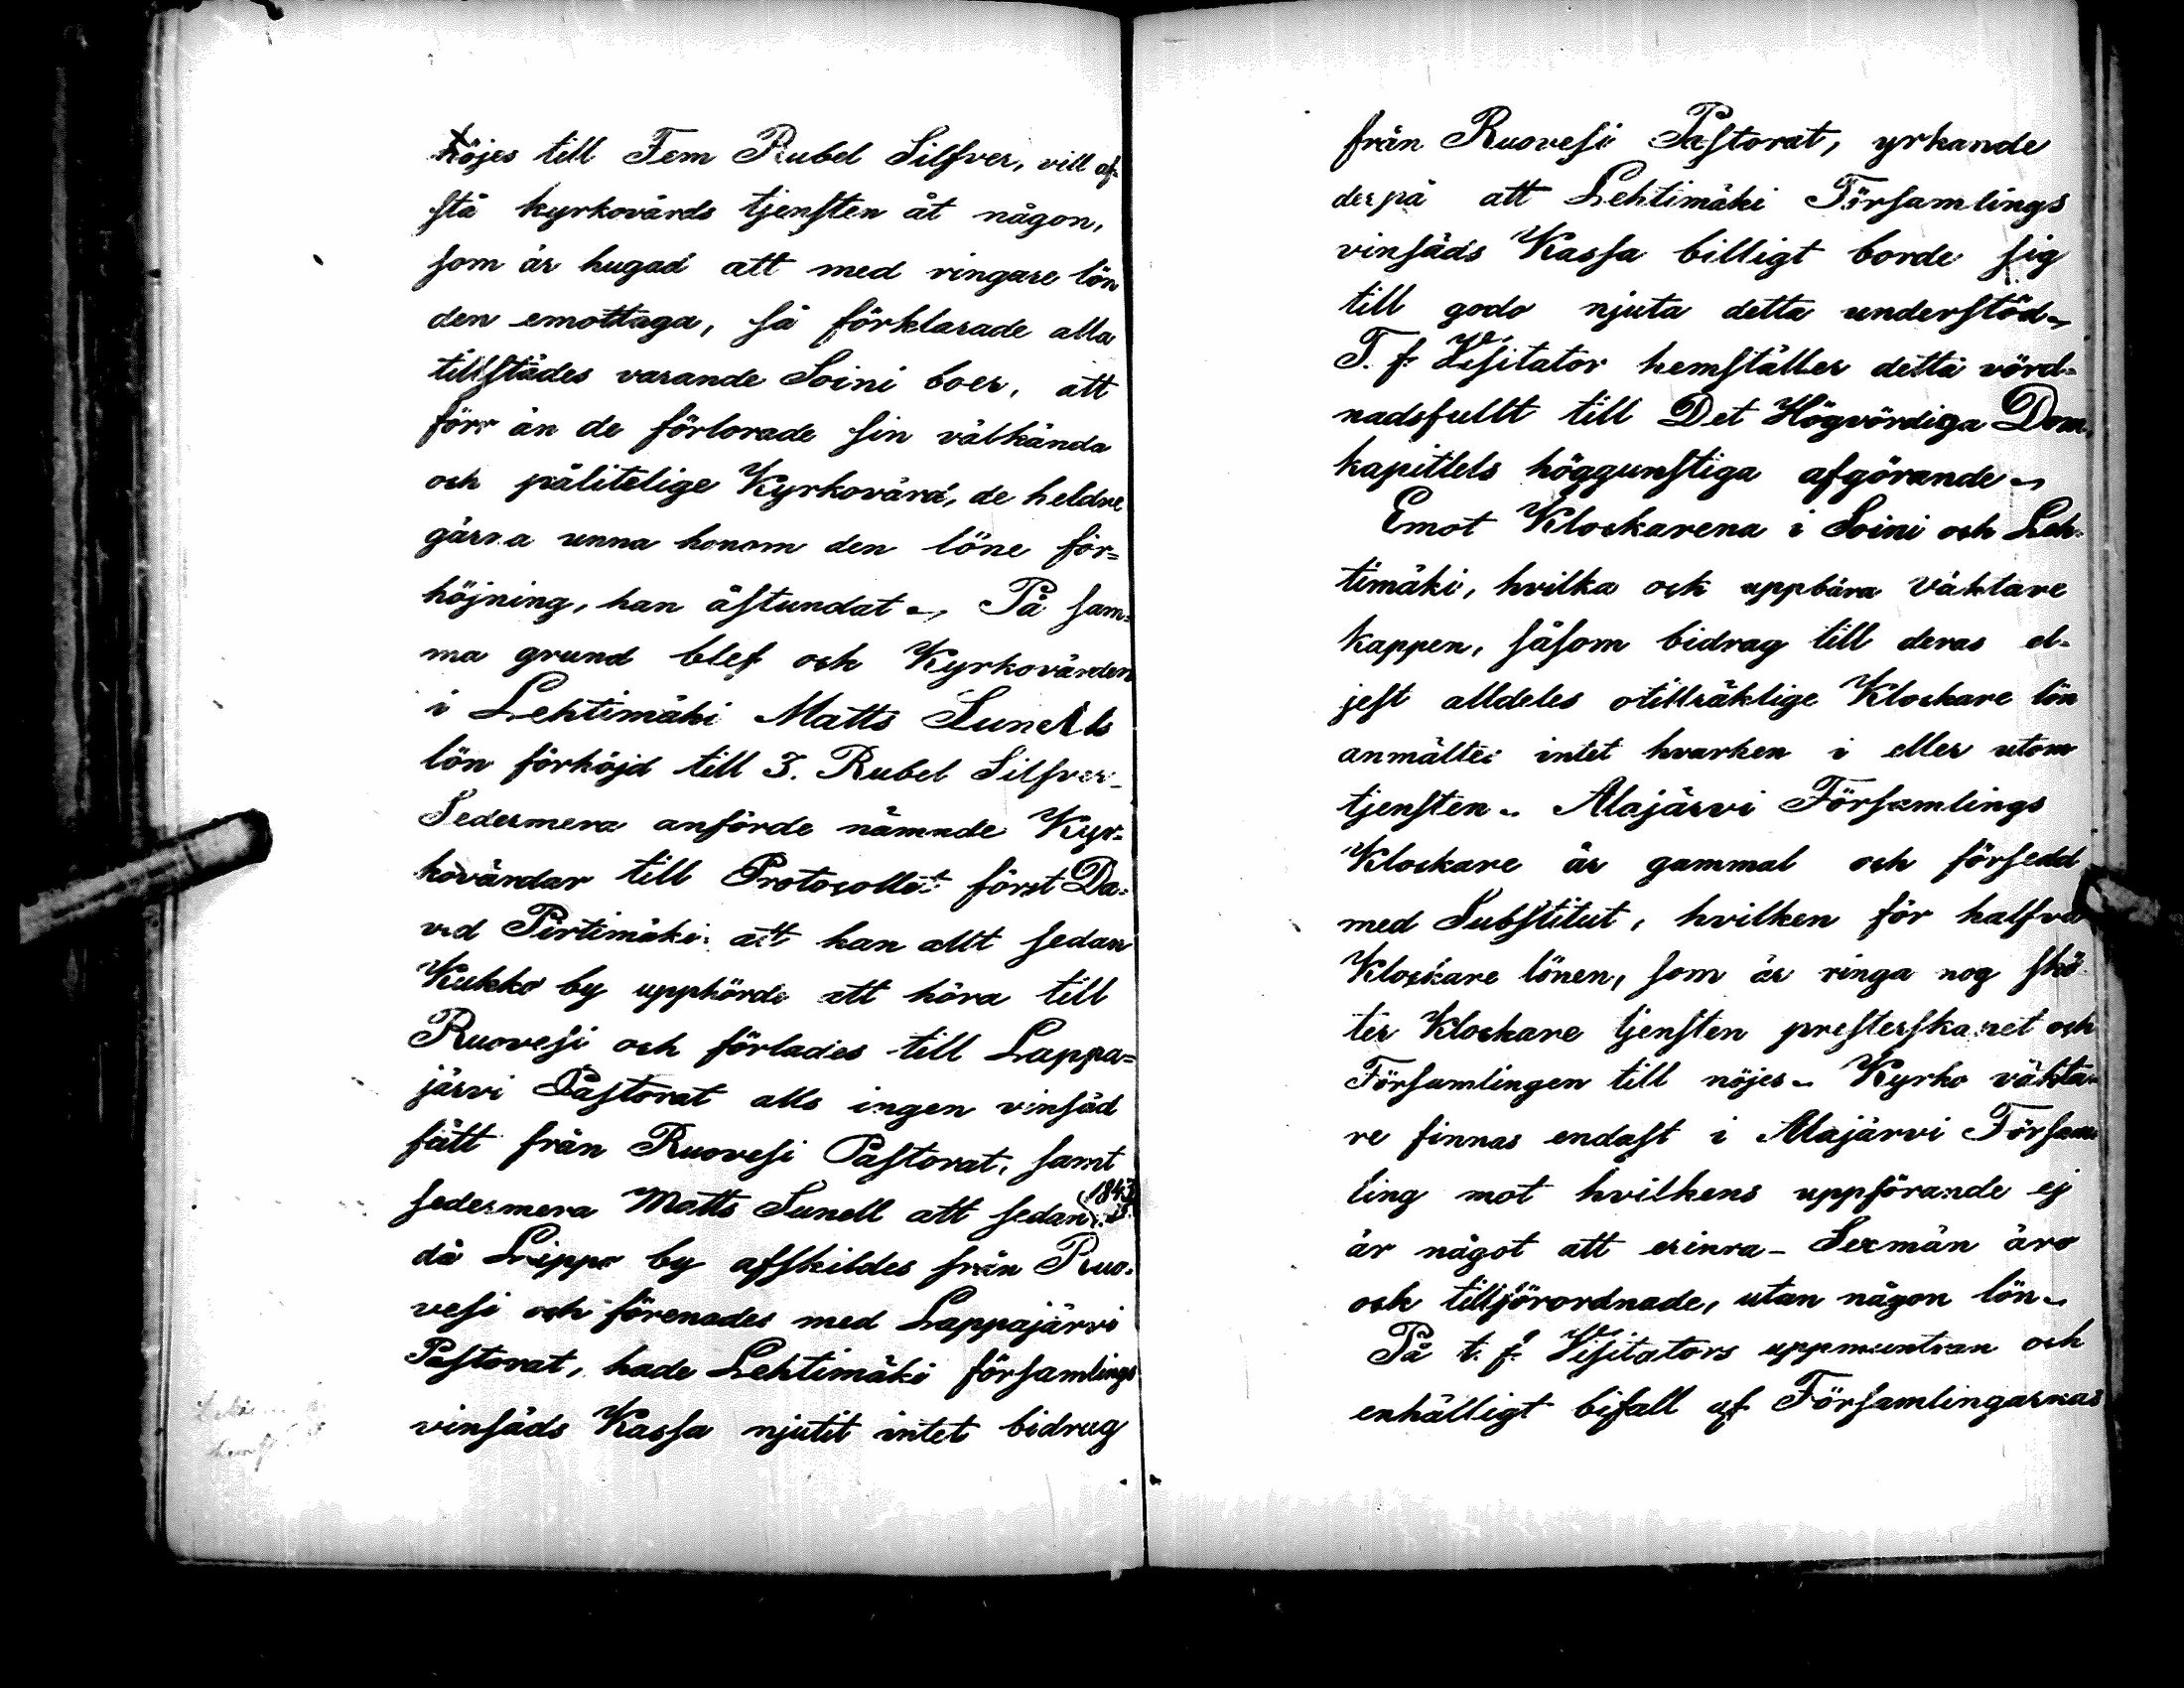 höjes till Fem Rubel Silfver, vill af-
stå kyrkovärds tjensten åt någon,
som är hugad att med ringare lön
den emottaga, så förklarade alla
tillstädes varande Soini boer, att
förr än de förlorade sin välkända
och pålitelige Kyrkovärd, de heldre
gärna unna honom den löne för=
höjning, han åstundat. På sam=
ma grund blef och Kyrkovärden
i Lehtimäki Matts Sunells
lön förhöjd till 3. Rubel Silfver_
Sedermera anförde nämnde Kyr=
kovärdar till Protocollet först Da=
vid Pirtimäki: att han allt sedan
Kukko by upphörde att höra till
Ruovesi och förlades till Lappa=
järvi Pastorat alls ingen vinsäd
fått från Ruovesi Pastorat, samt
sedermera Matts Sunell att sedan 1843
då Lippo by afskildes från Ruo=
vesi och förenades med Lappajärvi
Pastorat, hade Lehtimäki församlings
vinsäds Kassa njutit intet bidrag
från Ruovesi Pastorat, yrkande
derpå att Lehtimäki Församlings
vinsäds Kassa billigt borde sig
till godo njuta detta understöd.
T. f. Visitator hemställer detta vörd=
nadsfullt till Det Högvördiga Dom=
kapitlets höggunstiga afgörande.
Emot Klockarena i Soini och Leh=
timäki, hvilka och uppbära väktare
kappen, såsom bidrag till deras el=
jest alldeles otillräklige Klockare lön
anmältes intet hvarken i eller utom
tjensten. Alajärvi Församlings
Klockare är gammal och försedd
med Substitut, hvilken för halfva
Klockare lönen, som är ringa nog skö=
ter Klockare tjensten presterskapet och
Församlingen till nöjes. Kyrko väkta=
re finnas endast i Alajärvi Försam=
ling mot hvilkens uppförande ej
är något att erinra_ Sexmän äro
och tillförordnade, utan någon lön.
På t. f. Visitators uppmuntran och
enhälligt bifall af Församlingarnas